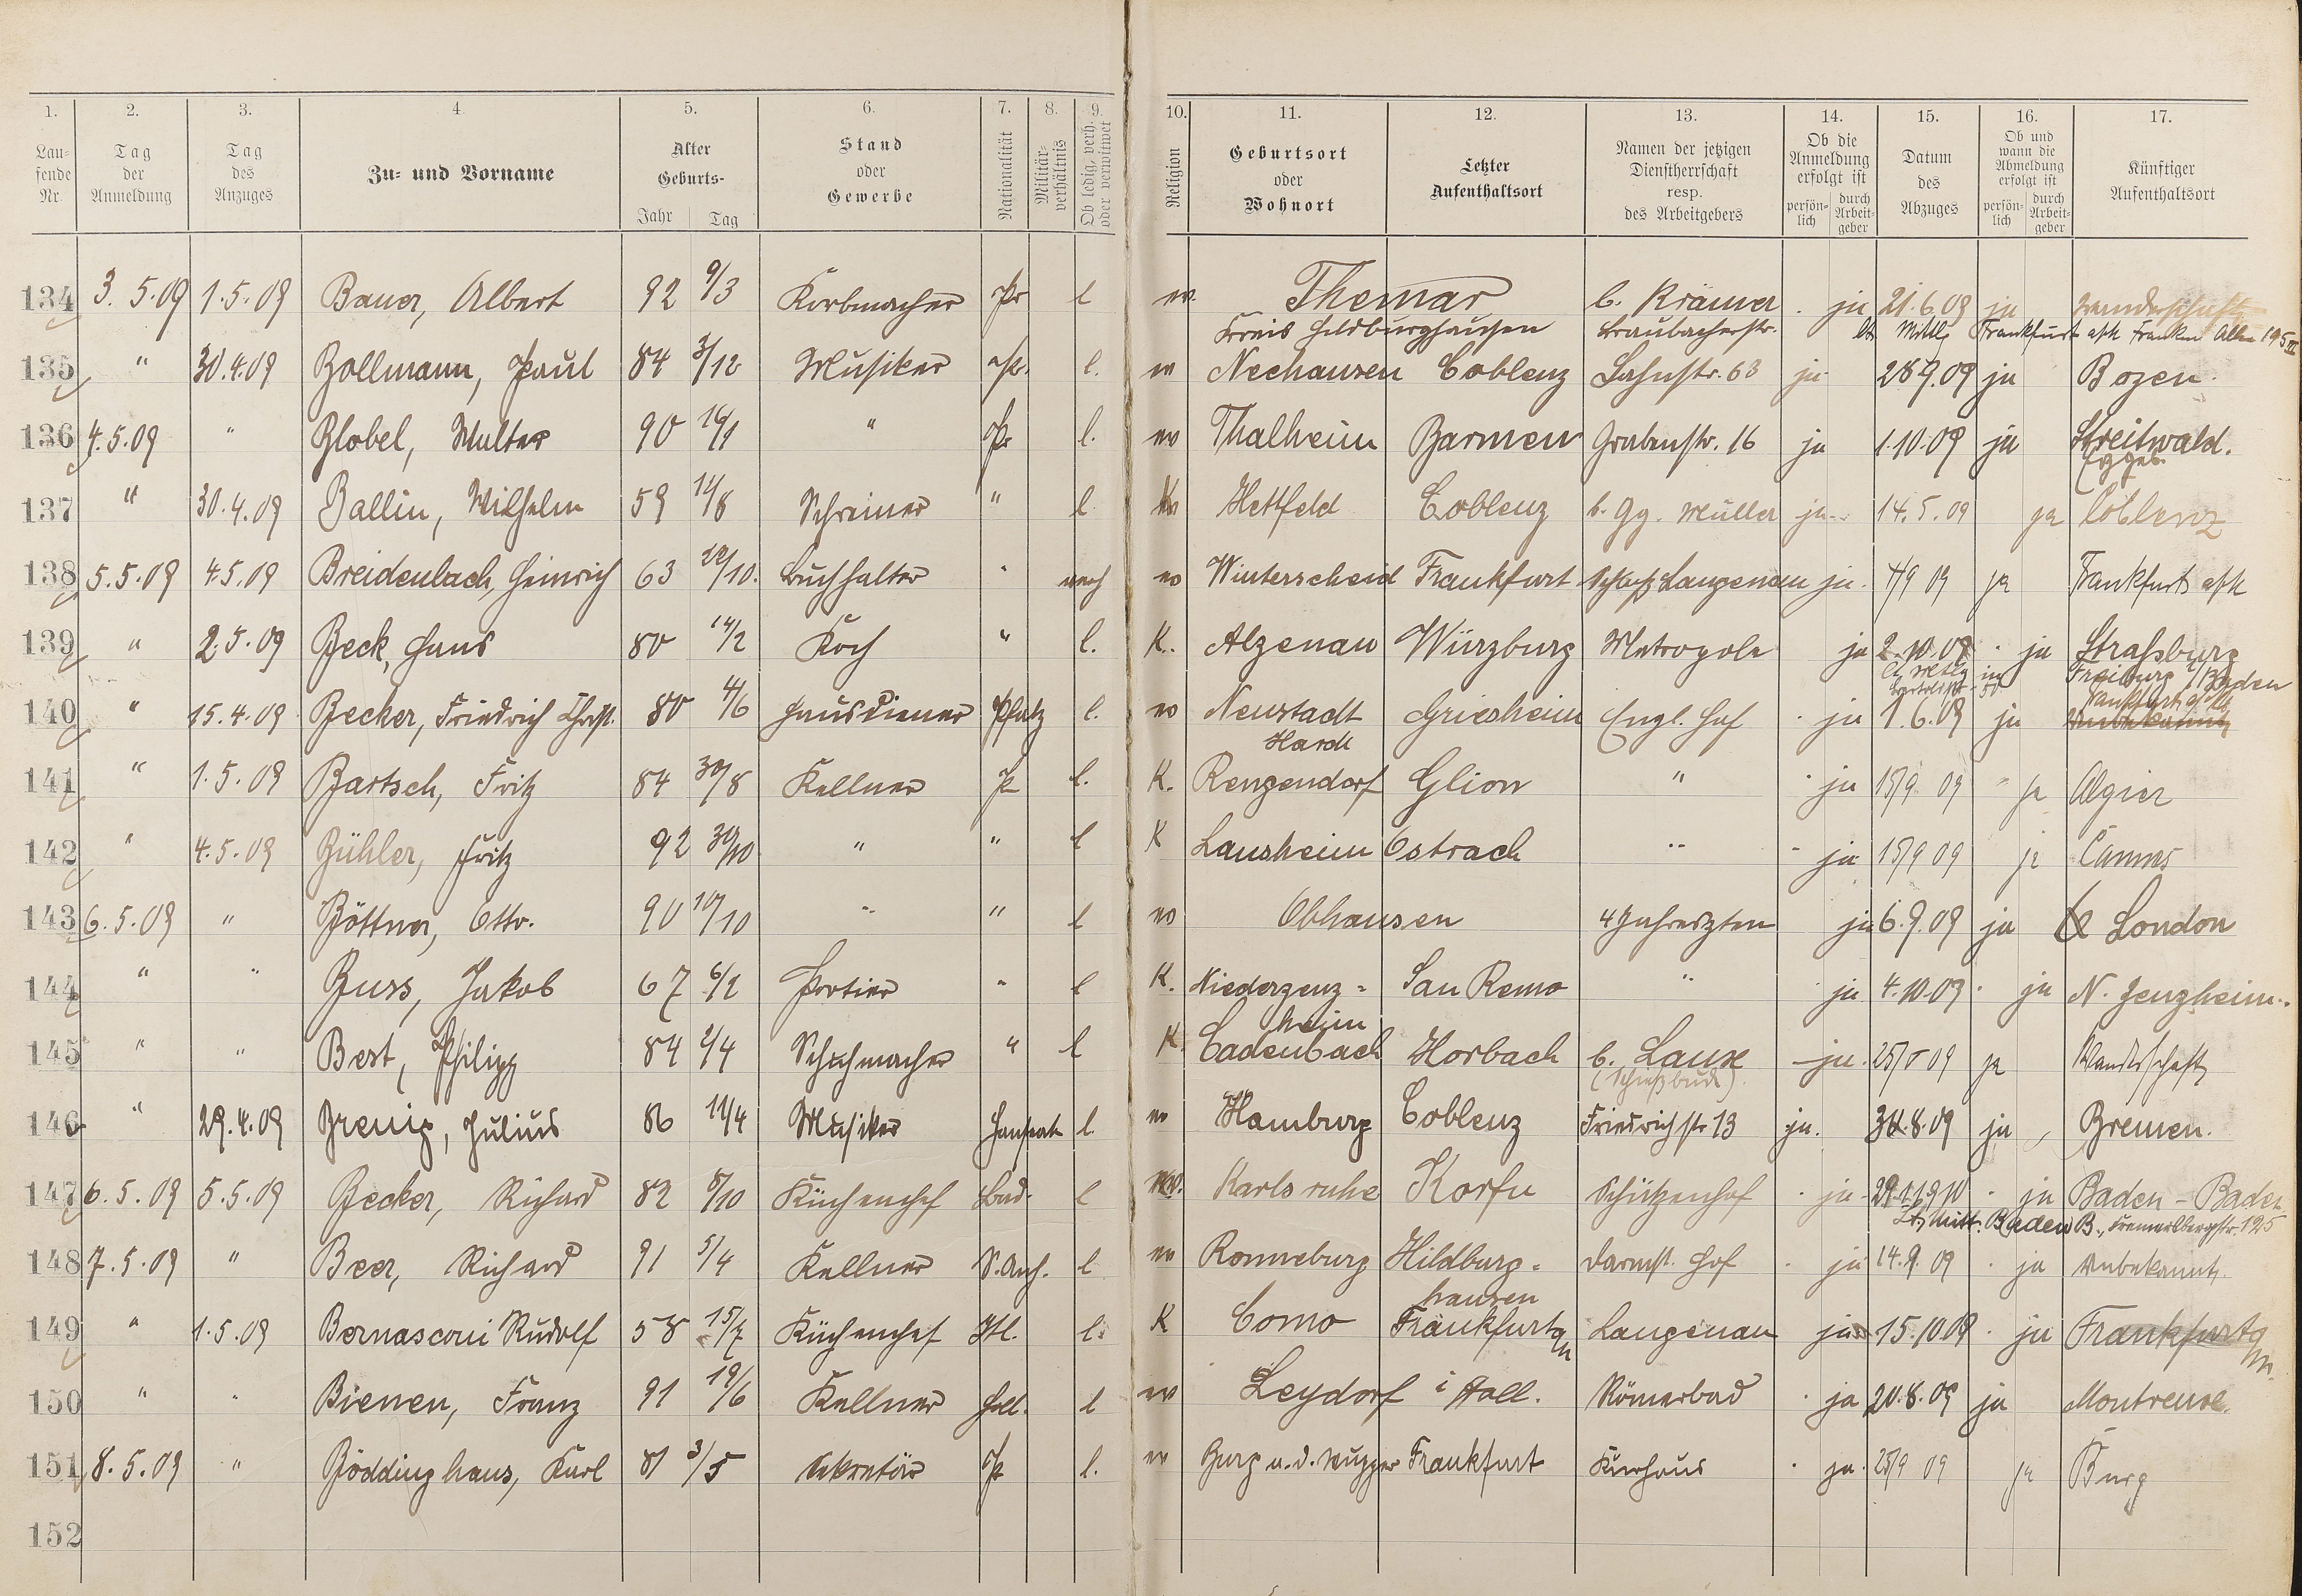 1. 2. 3. 4. 5. 6. 7. 8. 9. 10. 11. 12. 13. 14. 15. 16. 17.
Lau-fende Nr. Tag der Anmeldung Tag des Anzuges Zu- und Vorname Alter Geburts- Jahr Tag Stand oder Gewerbe Nationalität Militär-verhältnis Ob ledig, verh. oder verwitwet Religion Geburtsort oder Wohnort Letzter Aufenthaltsort Namen der jetzigen Dienstherrschaft resp. des Arbeitgebers Ob die Anmeldung erfolgt ist persön-lich durch Arbeit-geber Datum des Abzuges Ob und wann die Abmeldung erfolgt ist persön-lich durch Arbeit-geber Künftiger Aufenthaltsort
134 3.5.09 1.5.09 Bauer, Albert 92 9/3 Korbmacher Pr l ev. Themar b. Krämer ja 21.6.09 ja Wanderschaft
Kreis Hildburghausen Braubacherstr. lt. Mittlg Frankfurt a/M Franken Allee 195 III
135 " 30.4.09 Bollmann, Paul 84 3/12 Musiker Pr. l. ev Nechausen Coblenz Lahnstr. 63 ja 28.9.09 ja Bozen.
136 4.5.09 " Blobel, Walter 90 16/1 " Pr l. ev Thalheim Barmen Grabenstr. 16 ja 1.10.09 ja Streitwald.
Erzgeb.
137 " 30.4.09 Ballin, Wilhelm 59 14/8 Schreiner " l Hettfeld Coblenz b. Gg. Müller ja 14.5.09 ja Coblenz
138 5.5.09 4.5.09 Breidenbach, Heinrich 63 20/10. Buchhalter " verh ev Winterscheid Frankfurt Schloß Langenau ja. 4/9 09 ja Frankfurt a/M
139 " 2.5.09 Beck, Hans 80 14/2 Koch " l. K. Alzenau Würzburg Metropole ja 2.10.09 ja Straßburg
lt. Mttlg in Freiburg i/Baden
140 " 15.4.09 Becker, Friedrich Christ. 80 4/6 Hausdiener Pfalz l. ev Neustadt Griesheim Engl. Hof ja 1.6.09 ja Frankfurt a/M Unbekannt
Hardt
141 " 1.5.09 Bartsch, Fritz 84 30/8 Kellner P l. K. Rengendorf Glion " ja 15/9 09 ja Algier
142 " 4.5.09 Bühler, Fritz 92 30/10 " " l K Lausheim Ostrach " ja 15/9 09 ja Cannes
143 6.5.09 " Böttner, Otto. 90 10/10 " " l ev Obhausen 4 Jahreszten ja 6.9.09 ja London
144 " " Buss, Jakob 67 6/2 Portier " l K. Niedergenz- San Remo " ja 4.10.09 ja N. Jenzheim.
heim
145 " " Best, Philipp 84 2/4 Schuhmacher " l K. Cadenbach Horbach b. Laux ja. 25/5 09 ja Wanderschaft
(Schießbude).
146 " 29.4.09 Brenig, Julius 86 11/4 Musiker Hanseat l. ev Hamburg Coblenz Friedrichstr 13 ja. 30.8.09 ja Bremen.
147 6.5.09 5.5.09 Becker, Richard 82 8/10 Küchenchef Bad. l ev. Karlsruhe Korfu Schützenhof ja 29.1.1910 ja Baden-Baden
Lt. Mitt. Baden B., Fremersbergstr. 125
148 7.5.09 " Beer, Richard 91 5/4 Kellner S.Anh. l ev Ronneburg Hildburg- Darmst. Hof ja 14.9.09 ja Unbekannt
hausen
149 " 1.5.09 Bernasconi Rudolf 58 15/7 Küchenchef Itl. l. K Como Frankfurt a/M Langenau ja 15.10.09 ja Frankfurt a/M.
150 " " Bienen, Franz 91 19/6 Kellner Holl. l ev Leydorf i Holl. Römerbad ja 20.8.09 ja Montreux.
151 8.5.09 " Böddinghaus, Karl 81 3/5 Sekretär Pr l. ev Burg a.d. Wupper Frankfurt Kurhaus ja. 25/9 09 ja Burg
152